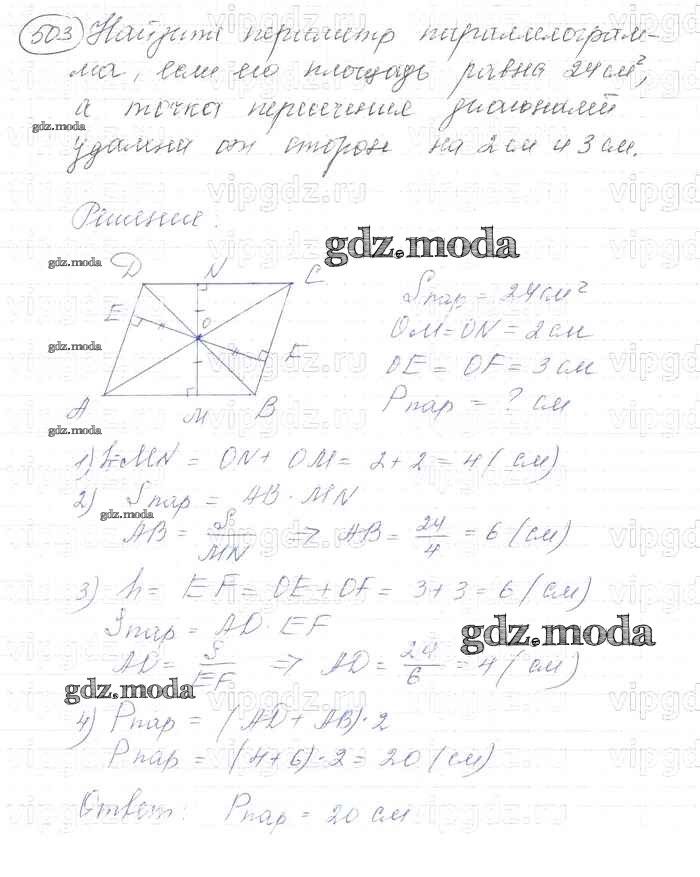 503 Найдите периметр параллелограм-
ма, если его площадь равна 24 см²,
а точка пересечения диагоналей
gdz.moda
удалена от сторон на 2 см и 3 см.
Решение:
gdz.moda
gdz.moda
D N C
Sпар = 24 см²
E O
OM = ON = 2 см
gdz.moda
F
OE = OF = 3 см
A M B
Pпар = ? см
gdz.moda
1) h = MN = ON + OM = 2 + 2 = 4 (см)
2) Sпар = AB · MN
gdz.moda
AB = S/MN => AB = 24/4 = 6 (см)
3) h = EF = OE + OF = 3 + 3 = 6 (см)
Sпар = AD · EF
gdz.moda
AD = S/EF => AD = 24/6 = 4 (см)
gdz.moda
4) Pпар = (AD + AB) · 2
Pпар = (4 + 6) · 2 = 20 (см)
Ответ: Pпар = 20 см
vipgdz.ru